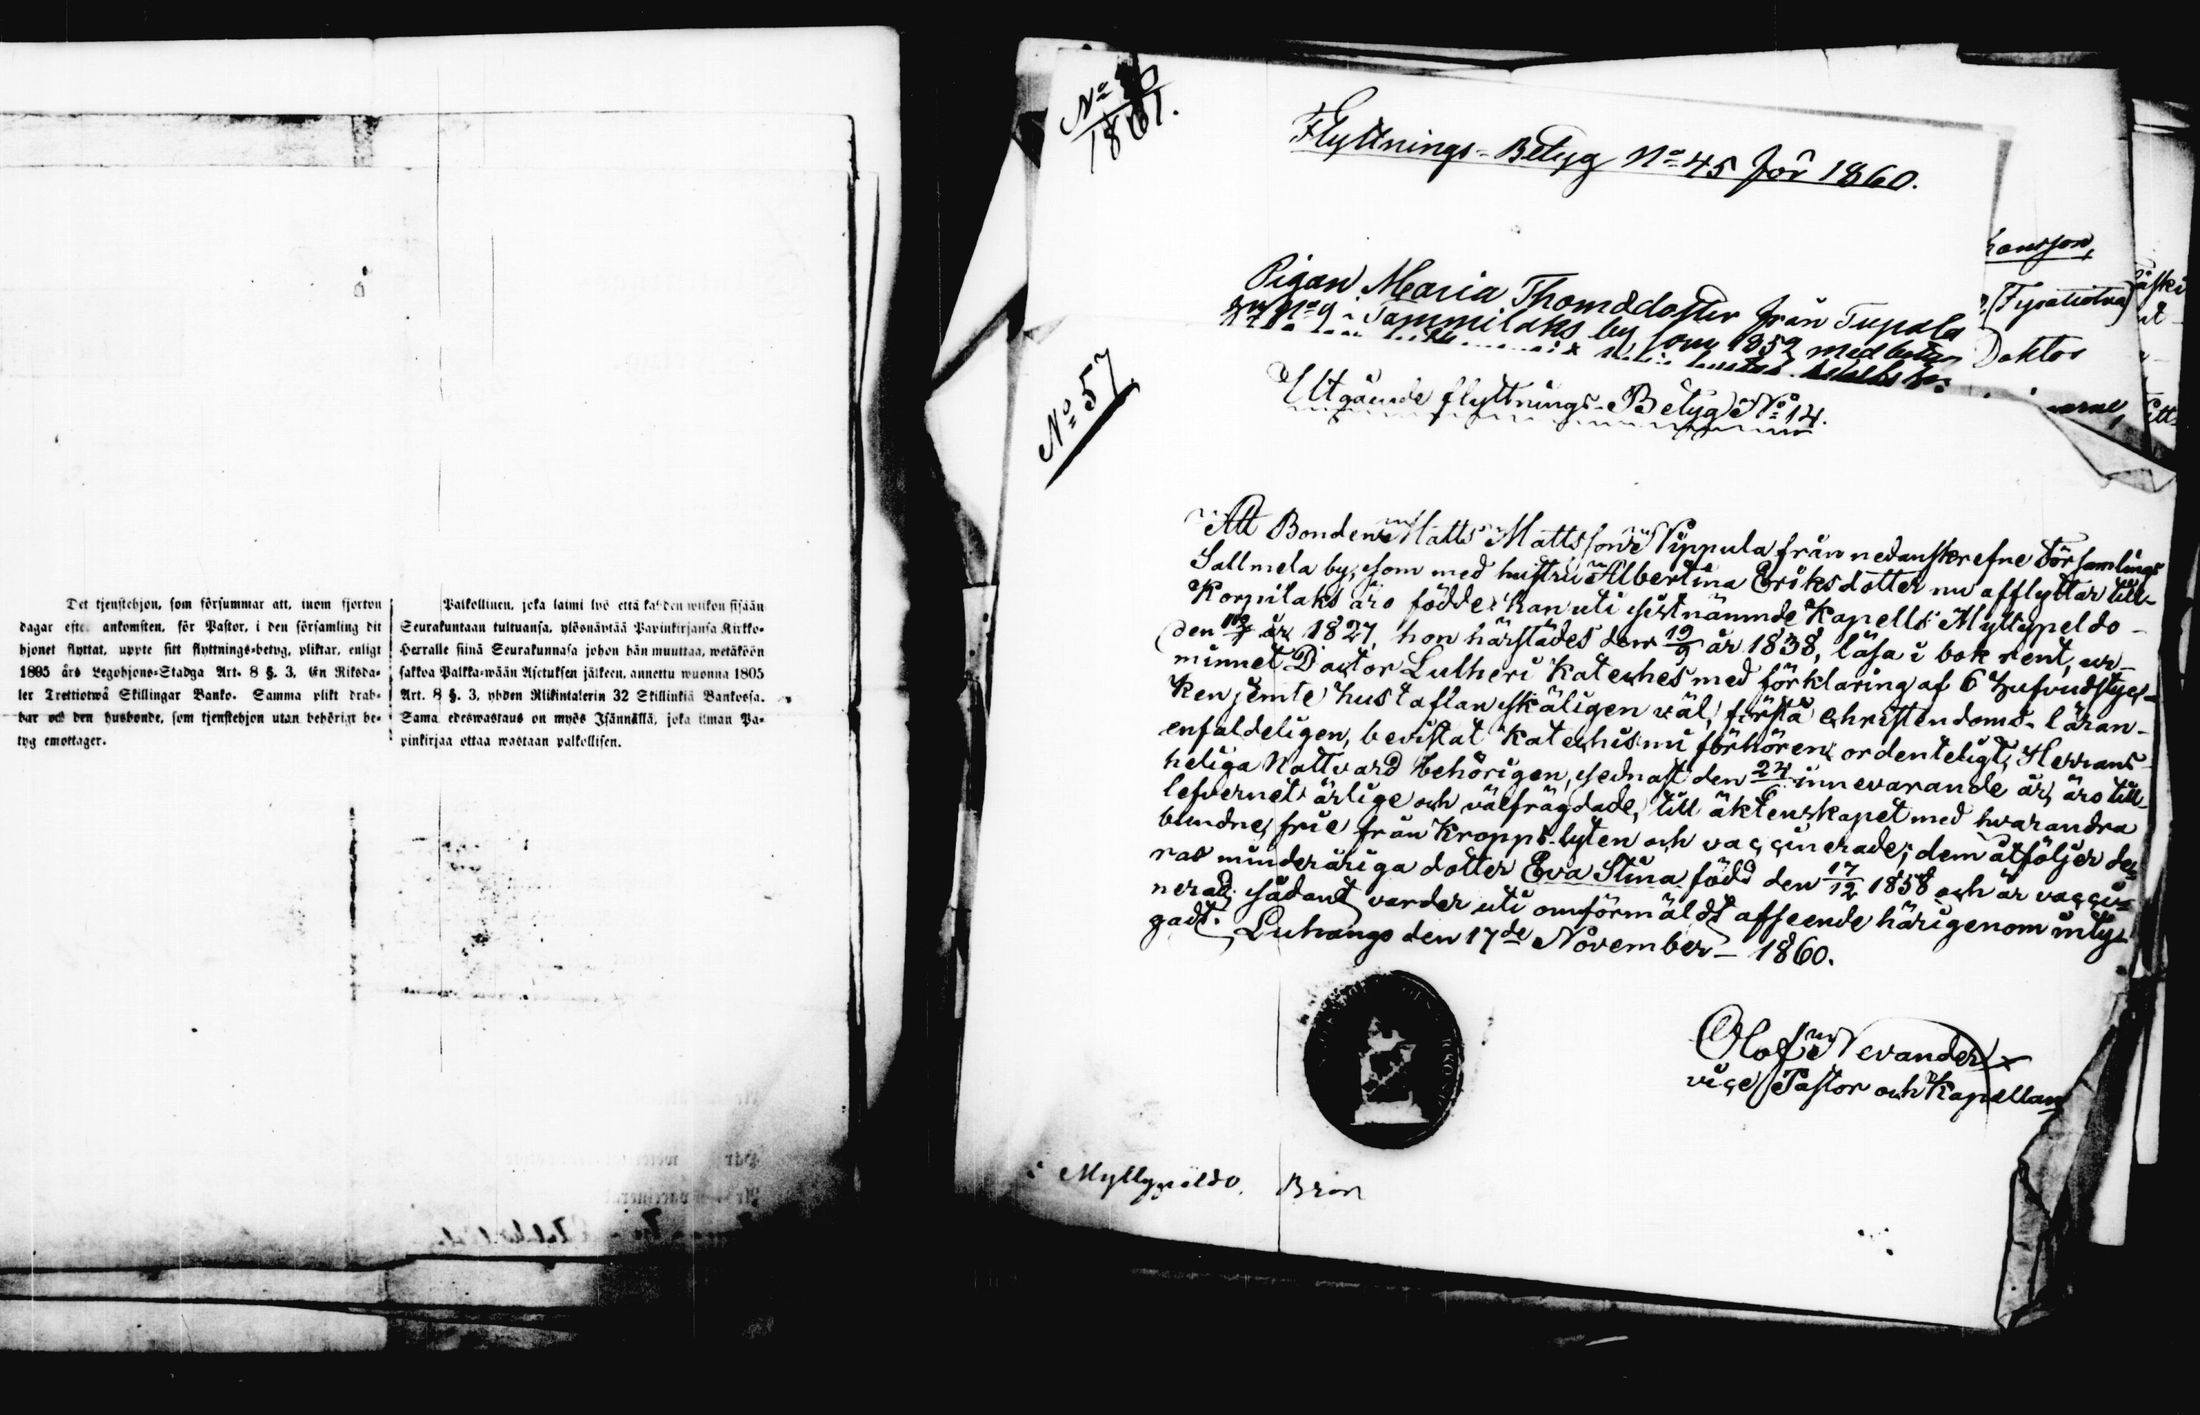 Det tjenstehjon, som försummar att, inom fjorton
dagar efter ankomsten, för Pastor, i den församling dit
hjonet flyttat, uppte sitt flyttnings-betyg, pliktar, enligt
1805 års Legohjons-Stadga Art. 8 §. 3, En Riksda-
ler Trettiotwå Skillingar Banko. Samma plikt drab-
bar och den husbonde, som tjenstehjon utan behörigt be-
tyg emottager.
Palkollinen, joka laimi lyö että kahden wiikon sisään
Seurakuntaan tultuansa, ylösnäyttää Papinkirjansa Kirkko-
Herralle siinä Seurakunnasa johon hän muuttaa, wetäköön
sakkoa Palkka-wään Asetuksen jälkeen, annettu wuonna 1805
Art. 8 §. 3, yhden Riikintalerin 32 Skillinkiä Bankossa.
Sama edeswastaus on myös Isännällä, joka ilman Pa-
pinkirjaa ottaa wastaan palkollisen.
No
1861.
Flyttnings-Betyg No 45 för 1860.
Pigan Maria Thomsdotter från Tupala
No 9 i Tammilaks by som 1859 med betyg
hansson,
Doktor
No 57
Utgående flyttnings-Betyg No 14.
Att Bonden Matts Mattsson Nippula från nedanskrefne Församlings
Sallmela by, som med hustru Albertina Eriksdotter nu afflyttar till
Korpilaks äro födde: han uti sistnämnde Kapells Myllypeldo-
den år 1827, hon härstädes den 19/2 år 1838, läsa i bok rent, ur-
minnet Doctor Lutheri Kateches med förklaring af 6 hufvudstyc-
ken jemte hustaflan skäligen väl, förstå christendoms-läran-
enfaldeligen, bevistat Katechismi förhören ordenteligt, Herrans-
heliga Nattvard behörigen, sednast den 24/6 innevarande år, äro till-
lefvernet ärlige och välfrägdade, till äktenskapet med hvarandra
bundne, frie från Kropps-lyten och vaccinerade; dem åtföljer de-
ras minderåriga dotter Eva Stina född den 17/12 1858 och är vacci-
nerad. sådant varder uti omförmäldt afseende härigenom inty-
gadt. Luhango den 17de November 1860.
Olof Nevander
vice Pastor och Kapellan
Myllypeldo.